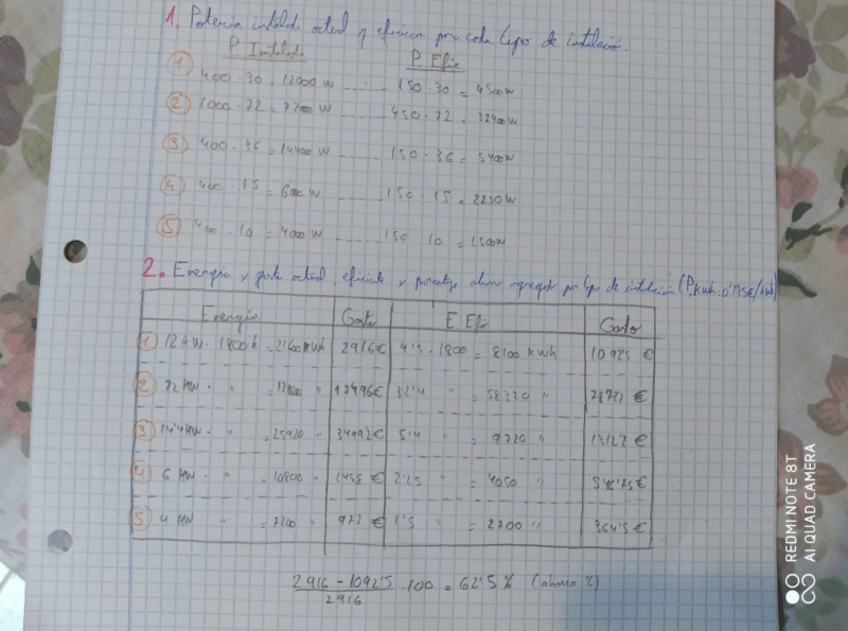 1. Potencia instalada actual y eficiencia por cada tipo de instalación.
P. Instalada P. Efic
① 400 · 30 = 12000 W ...... 150 · 30 = 4500 W
② 1000 · 72 = 7200 W ...... 450 · 72 = 32400 W
③ 400 · 36 = 14400 W ...... 150 · 36 = 5400 W
④ 400 · 15 = 6000 W ...... 150 · 15 = 2250 W
⑤ 400 · 10 = 4000 W ...... 150 10 = 1500 W
2. Energía y gasto actual, eficiente y porcentaje ahorro por tipo de instalación (P.kWh
Energía Gasto E. Efi Gasto
① 12 kW · 1800 h = 21600 kWh 2916 € 4'5 · 1800 = 8100 kWh 1092'5 €
② 72 kW · " = " 17496 € 32'4 " = 58320 " €
③ 14'4 kW · " = 25920 " € 5'4 " = 9720 " €
④ 6 kW · " = 10800 " 1458 € 2'25 " = 4050 " €
⑤ 4 kW " = 7200 " 972 € 1'5 " = 2700 " 364'5 €
2916 - 1092'5 / 2916 · 100 = 62'5 % (ahorro %)
REDMI NOTE 8T
AI QUAD CAMERA